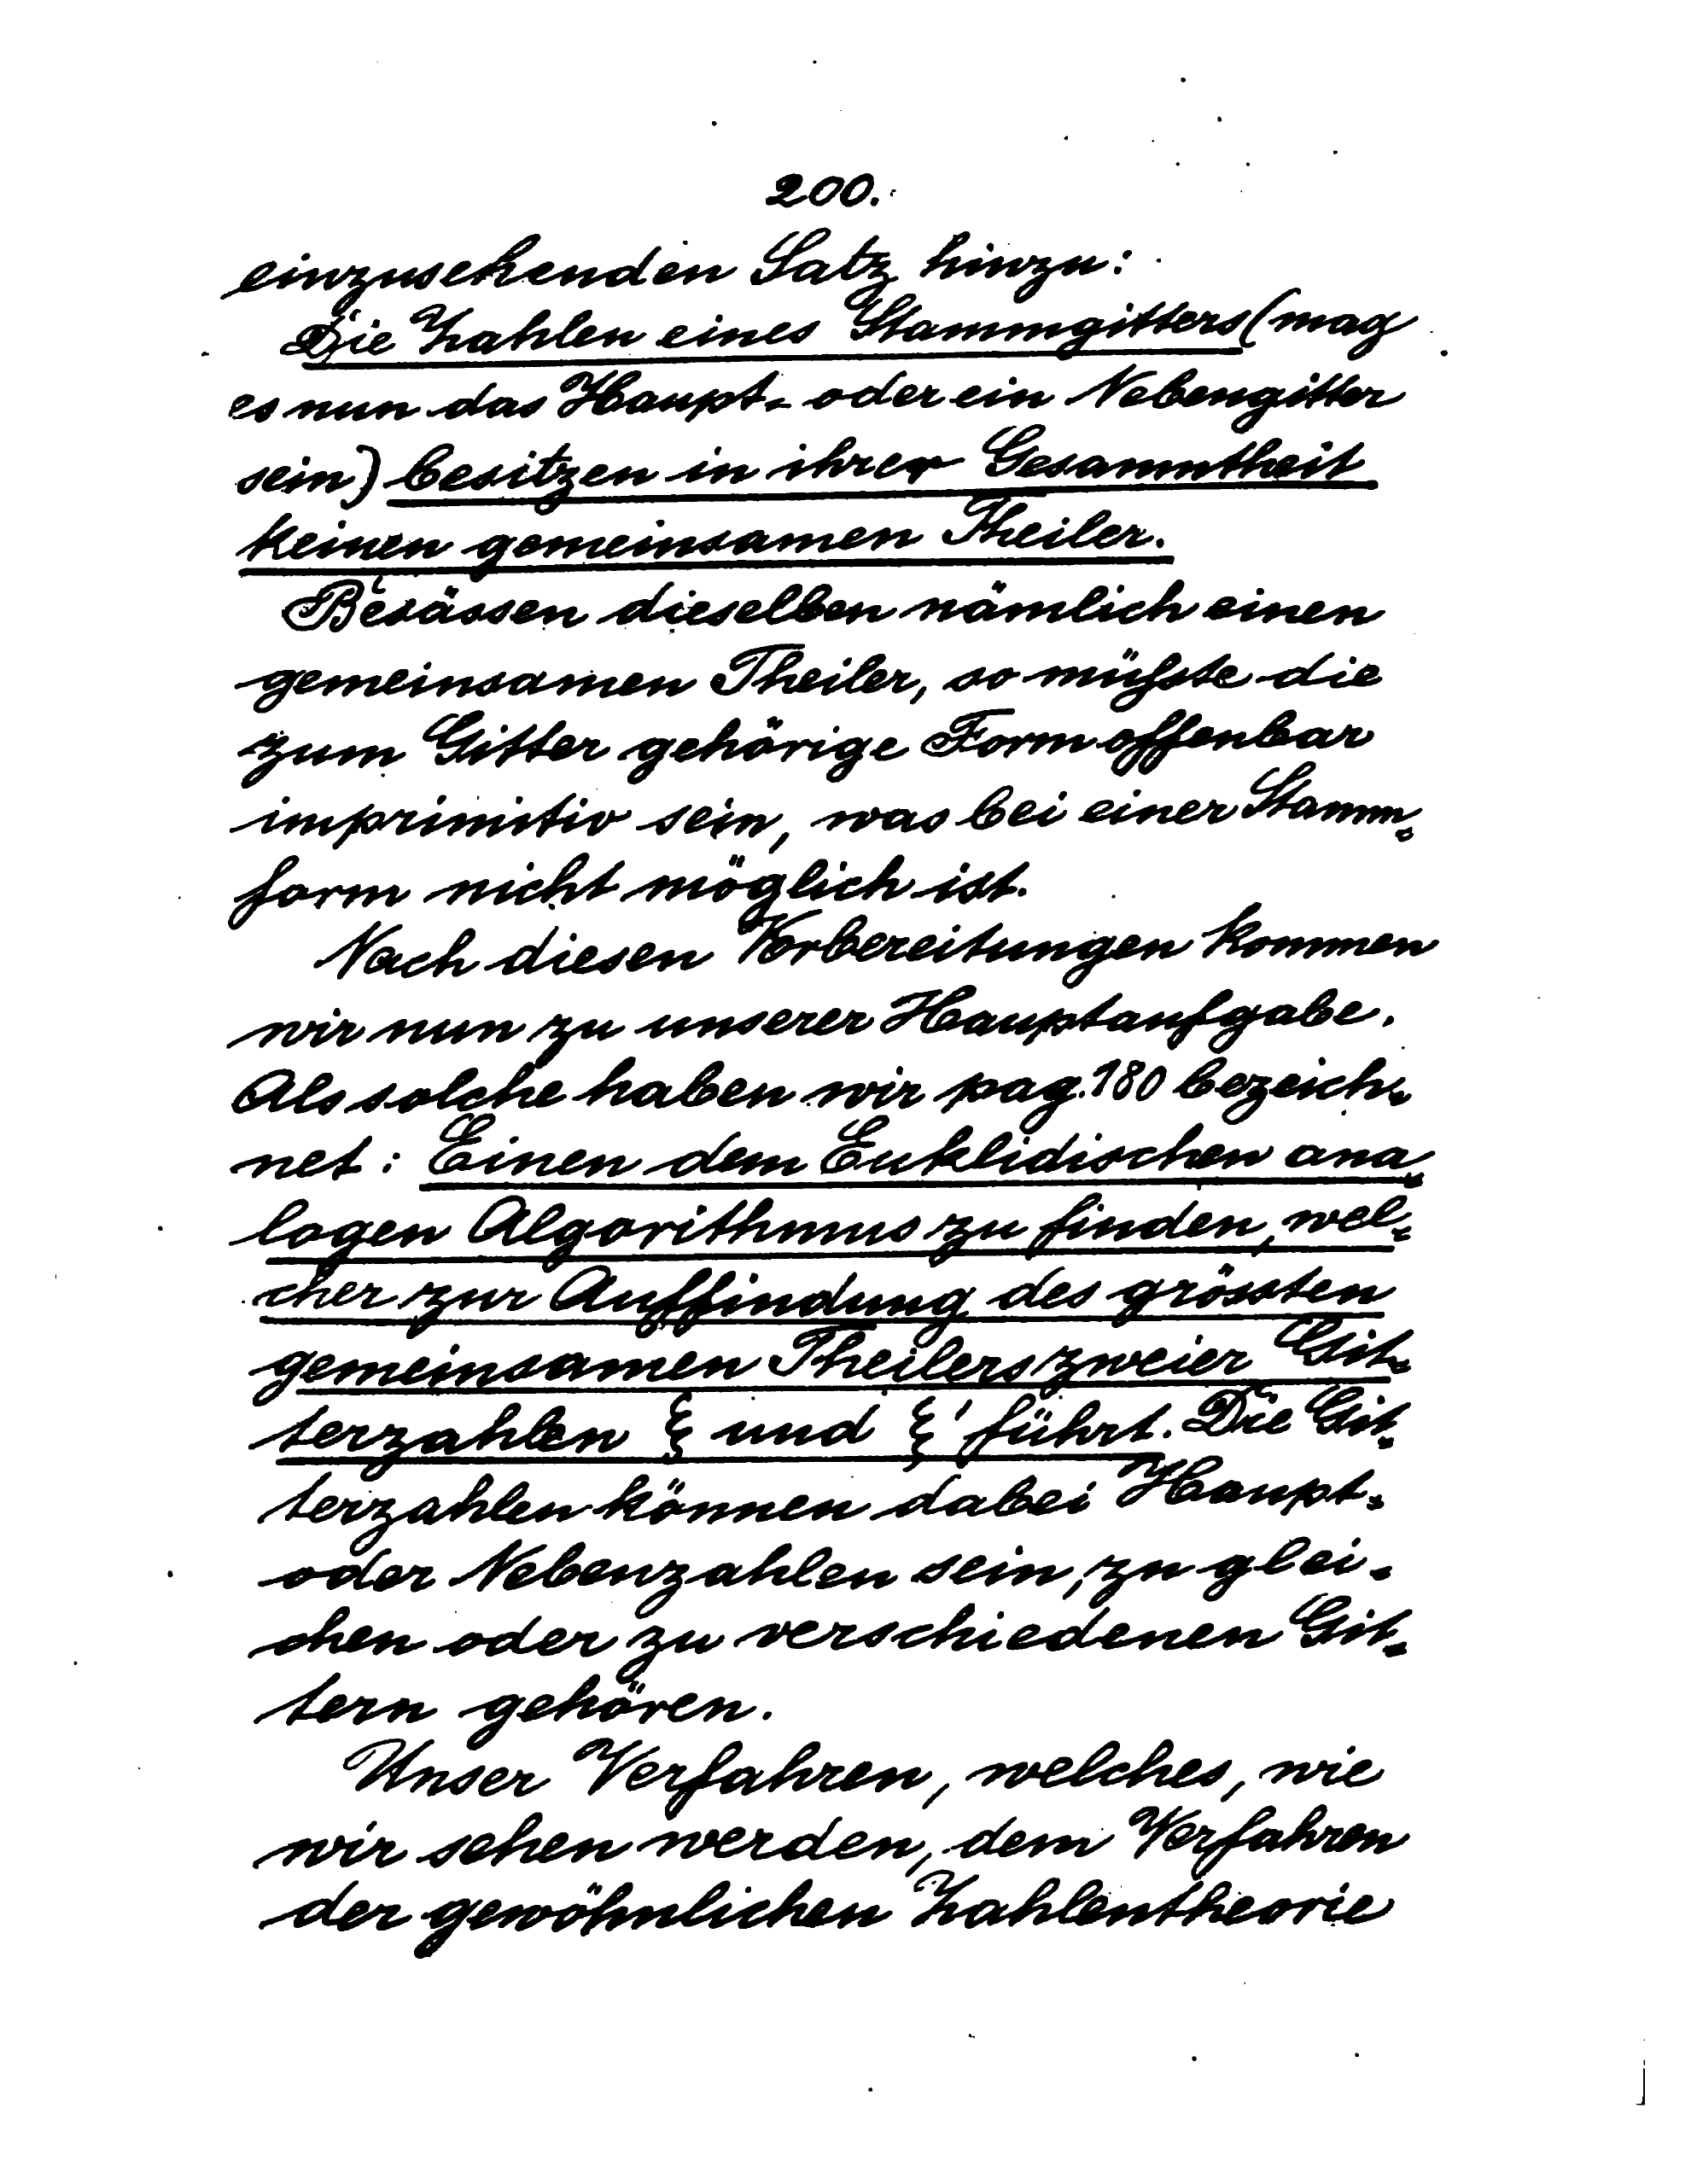 200.
einzusehenden Satz hinzu:
Die Zahlen eines Stammgitters (mag
es nun das Haupt- oder ein Nebengitter
sein) besitzen in ihrer Gesammtheit
keinen gemeinsamen Theiler.
Besässen dieselben nämlich einen
gemeinsamen Theiler, so müßste die
zum Gitter gehörige Form offenbar
imprimitiv sein, was bei einer Stamm-
form nicht möglich ist.
Nach diesen Vorbereitungen kommen
wir nun zu unserer Hauptaufgabe.
Als solche haben wir pag. 180 bezeich-
net: Einen dem Euklidischen ana-
logen Algorithmus zu finden, wel-
cher zur Auffindung des grössten
gemeinsamen Theilers zweier Git-
terzahlen ξ und ξ' führt. Die Git-
terzahlen können dabei Haupt-
oder Nebenzahlen sein, zu glei-
chen oder zu verschiedenen Git-
tern gehören.
Unser Verfahren, welches, wie
wir sehen werden, dem Verfahren
der gewöhnlichen Zahlentheorie